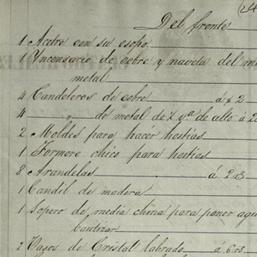 (24
Del frente
1 Acetre con su isopo
1 Yncensario de cobre y naveta del m
metal
4 Candeleros de cobre á $ 2
4 " de metal de ½ vª de alto á 2
2 Moldes para hacer hostias
1 Formero chico para hostias
8 Arandelas á 2 rs
1 Candil de madera
1 Sopero de media china para poner agu
bautizar
2 Vasos de Cristal labrado á 6 rs